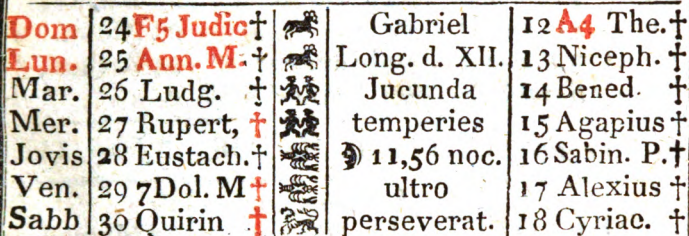 Dom 24 F5 Judic † Gabriel 12 A4 The. †
Lun. 25 Ann. M. † Long. d. XII. 13 Niceph. †
Mar. 26 Ludg. † Jucunda 14 Bened. †
Mer. 27 Rupert, † temperies 15 Agapius †
Jovis 28 Eustach. † 11,56 noc. 16 Sabin. P. †
Ven. 29 7Dol. M † ultro 17 Alexius †
Sabb 30 Quirin † perseverat. 18 Cyriac. †